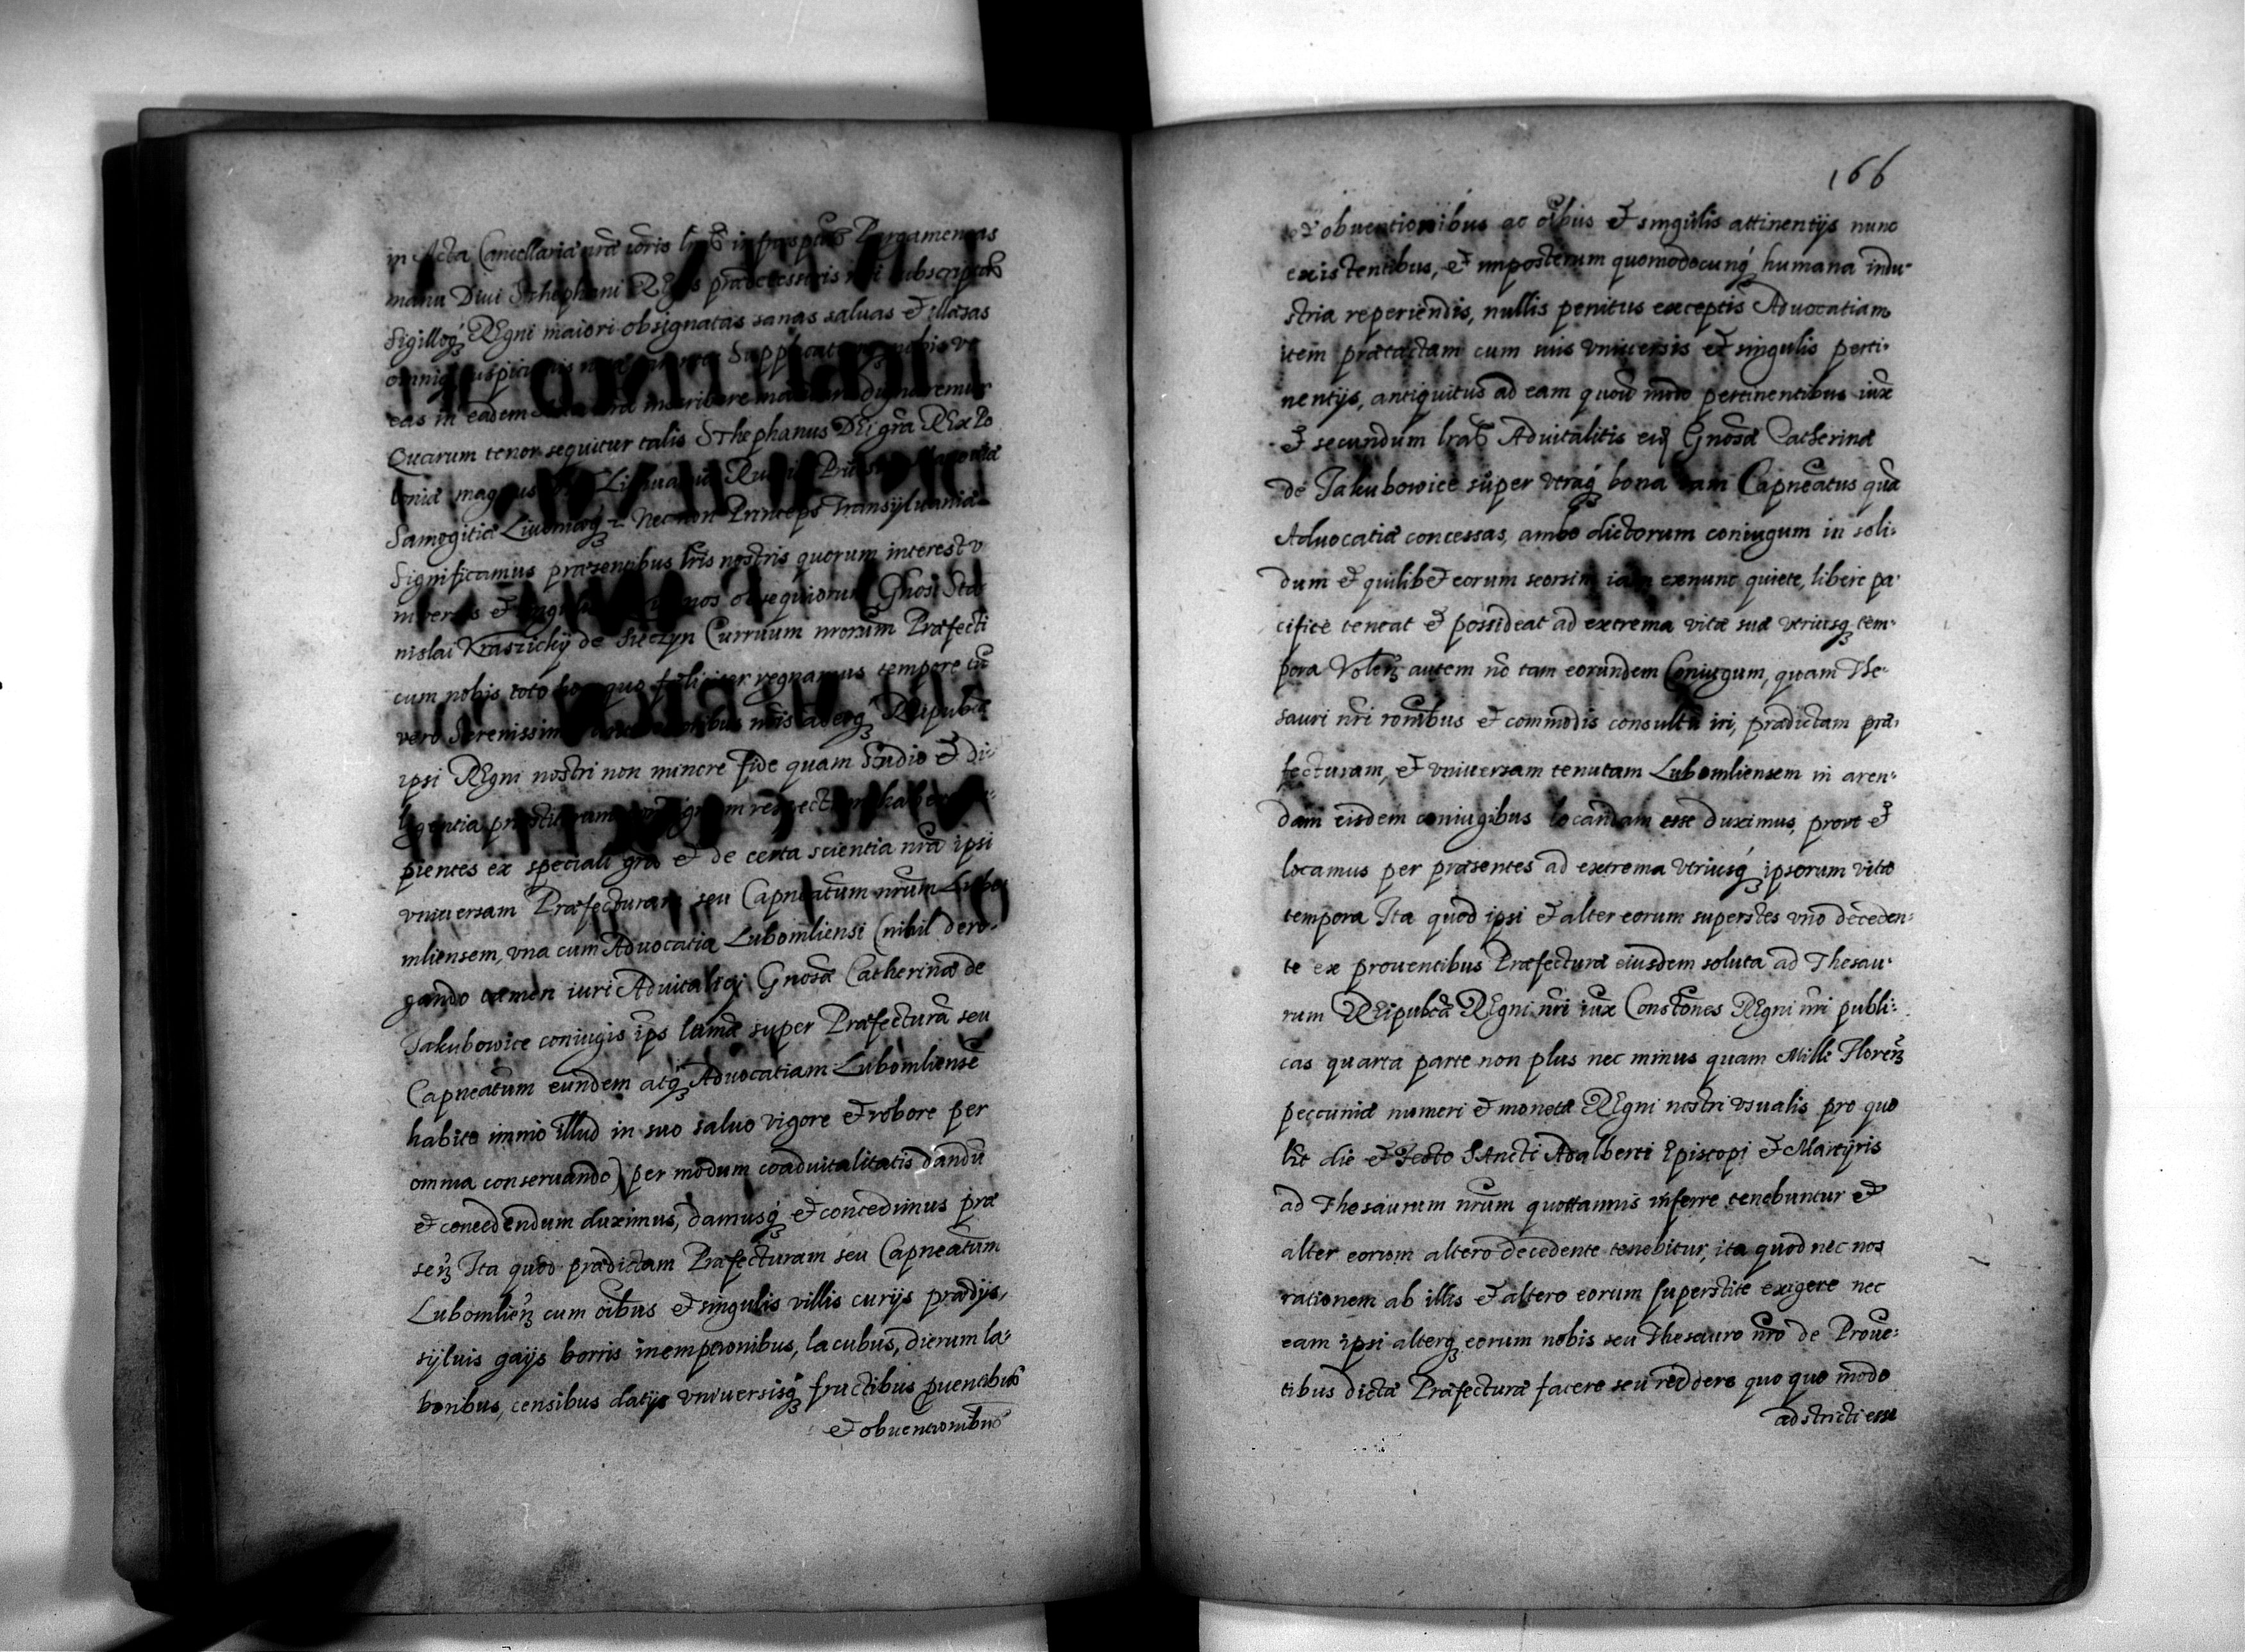 in Acta Cancellariæ nræ
manu Divi Stephani Regis prædecessoris nri subscriptas
Sigilloq; Regni maiori obsignatas sanas saluas et illæsas
eas in eadem Acta
Quarum tenor sequitur talis Sthephanus Dei gra Rex Po
loniæ magnus
Samogitiæ Livoniæq; Necnon Princeps Transylvaniæ
Significamus præsentibus lris nostris quorum interest v
niversis et singulis nos obsequiorum Gnosi Sta
nislai Krasziczky de Currum nrorum Præfecti
cum nobis toto hoc quo feliciter regnamus tempore tu
vero Serenissimis nris Reipubcæ
ipsi Regni nostri non minore fide quam studio et di-
ligentia
pientes ex speciali gra et de certa scientia nra ipsi
vniuersam Præfecturam seu Capneatum nrum Lubo
mliensem, vna cum Advocatia Lubomliensi (nihil dero-
gando tamen iuri Advitalitatis Gnosæ Catherinæ de
Jakubowice coniugis ips super Præfecturā seu
Capneatum eundem atq; Advocatiam Lubomliensē
habito immo illud in suo saluo vigore et robore per
omnia conseruando) per modum coadvitalitatis dandū
et concedendum duximus, damusq; et concedimus præ
sen; Ita quod prædictam Præfecturam seu Capneatum
Lubomlien; cum oibus et singulis villis curijs prædijs,
syluis gaijs borris inemptionibus, lacubus, dierum la-
boribus, censibus datijs vniuersisq; fructibus puentibus
et obuentionibus
166
et obuentionibus ac oibus et singulis attinentijs nunc
existentibus, et imposterum quomodocunq; humana indu-
stria reperiendis, nullis penitus exceptis Advocatiam
item prætactam cum suis vniuersis et singulis perti-
nentijs, antiquitus ad eam quouis modo pertinentibus iux
et secundum lras Advitalitis eid Gnosæ Catherinæ
de Jakubowice super vtraq; bona tam Capneatus quā
Advocatiæ concessas, ambo dictorum coniugum in soli-
dum et quilibet eorum seorsim iam exnunc quiete, libere pa-
cifice teneat et possideat ad extrema vitæ suæ vtriusq; tem-
pora Volen; autem nō tam eorundem Coniugum, quam The-
sauri nri ronibus et commodis consultū iri, prædictam præ-
fecturam, et vniuersam tenutam Lubomliensem in aren-
dam eisdem coniugibus locandam esse duximus, prout et
locamus per præsentes ad extrema vtriusq; ipsorum vitæ
tempora Ita quod ipsi et alter eorum superstes vno deceden-
te ex prouentibus Præfecturæ eiusdem soluta ad Thesau-
rum Reipubcæ Regni nri iux Constones Regni nri publi-
cas quarta parte non plus nec minus quam Mille Floren;
peccuniæ numeri et monetæ Regni nostri vsualis pro quo
lbt die et Festo Sancti Adalberti Episcopi et Martyris
ad Thesaurum nrum quottannis inferre tenebuntur et
alter eorum altero decedente tenebitur, ita quod nec nos
rationem ab illis et altero eorum superstite exigere nec
eam ipsi alterq; eorum nobis seu Thesauro nro de Proue-
tibus dictæ Præfecturæ facere seu reddere quo quo modo
adstricti esse